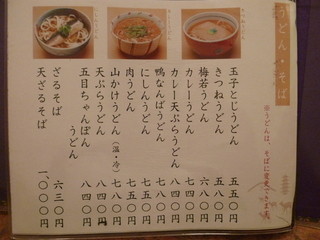 うどん・そば
※うどんは、そばに変更
玉子とじうどん 五五〇円
きつねうどん 五八〇円
梅若うどん 六八〇円
カレーうどん 七八〇円
カレー天ぷらうどん 八四〇円
鴨なんばうどん 七八〇円
にしんうどん 七五〇円
肉うどん 七五〇円
山かけうどん（温・冷） 七八〇円
天ぷらうどん 八四〇円
五目ちゃんぽんうどん 八四〇円
ざるそば 六三〇円
天ざるそば 一、〇〇〇円